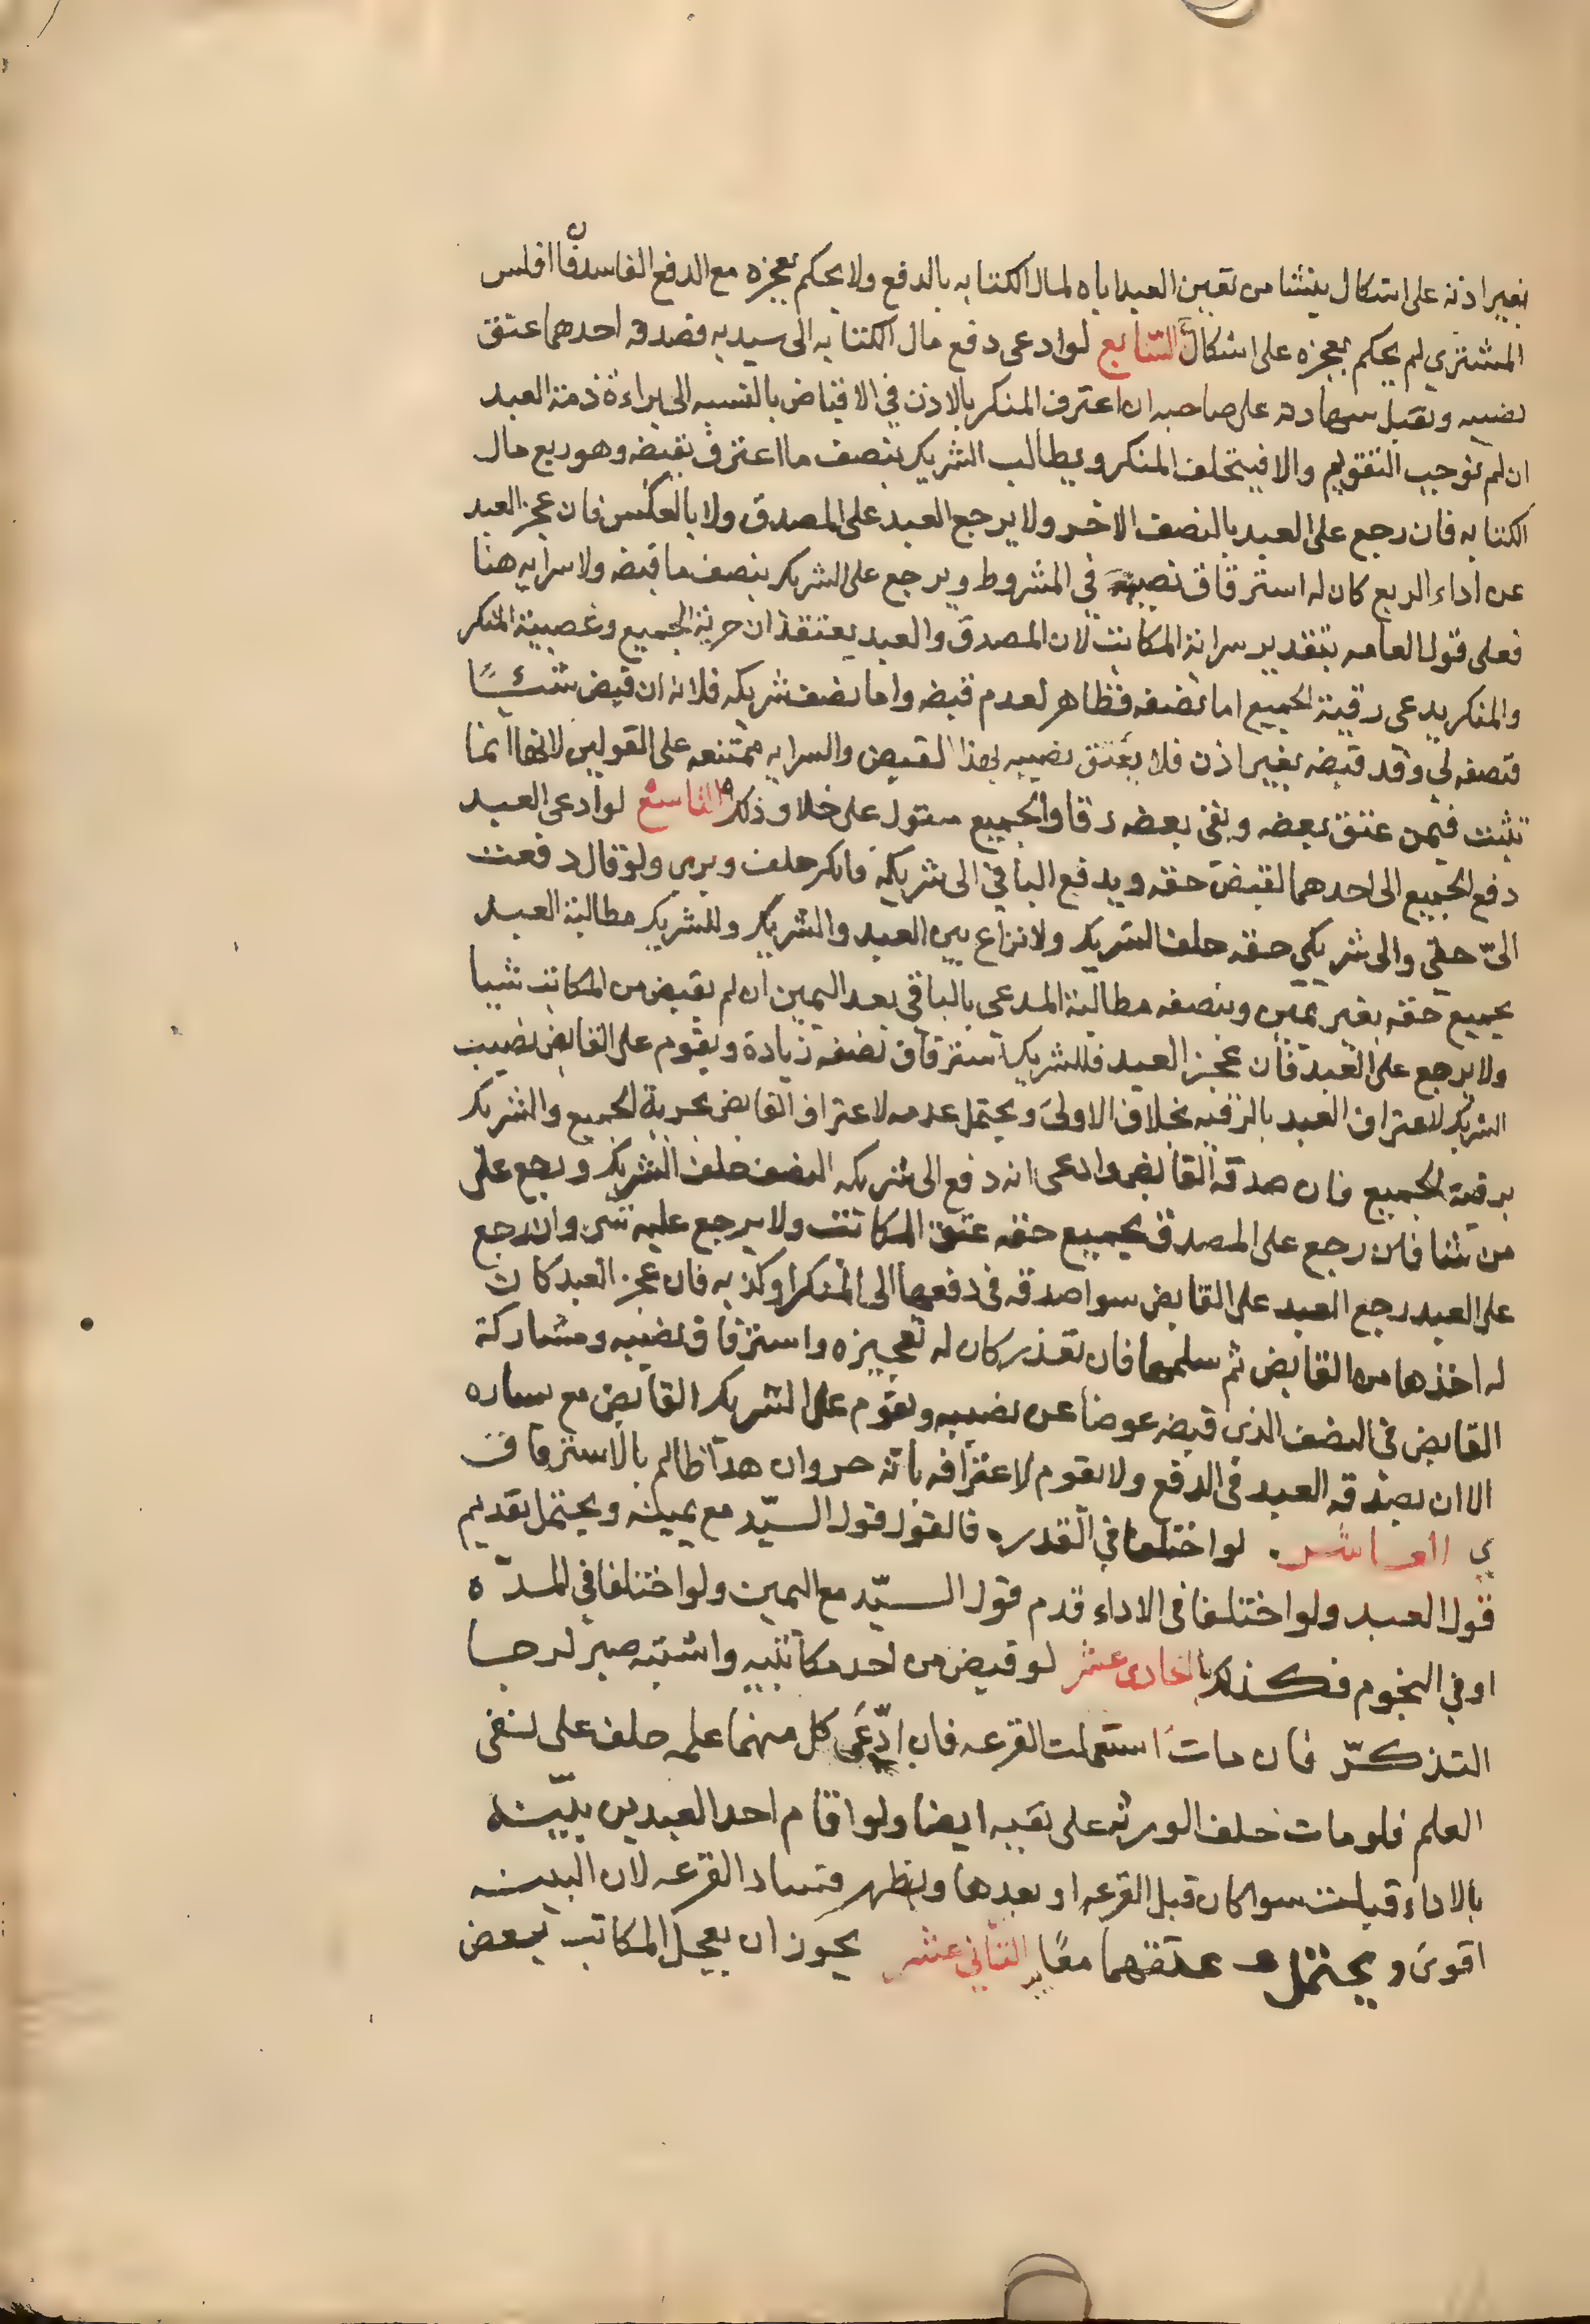 بغير اذنه على اشكال ينشا من تعيين العبد اياه لمال الكتابه بالدفع ولا يحكم بعجزه مع الدفع الفاسد فان افلس
المشتري لم يحكم بعجزه على اشكال السابع لو ادعى دفع مال الكتابه الى سيديه فصدقه احدهما عتق
نصيبه وتقبل شهادته على صاحبه ان اعترف المنكر بالاذن في الاقباض بالنسبه الى براءة ذمة العبد
ان لم نوجب التقويم والا فيحلف المنكر ويطالب الشريك بنصف ما اعترف بقبضه وهو ربع مال
الكتابه فان رجع على العبد بالنصف الاخر ولا يرجع العبد على المصدق ولا بالعكس فان عجز العبد
عن اداء الربع كان له استرقاق نصيبه في المشروط ويرجع على الشريك بنصف ما قبضه ولا سرايه هنا
فعلى قول العامه بتقدير سراية المكاتب لان المصدق والعبد يعتقدان حرية الجميع وغصبية المنكر
والمنكر يدعى رقية الجميع اما نصفه فظاهر لعدم قبضه واما نصف شريكه فلانه ان قبض شيئًا
فنصفه لي وقد قبضه بغير اذن فلا يعتق نصيبه بهذا القبض والسرايه ممتنعه على القولين لانها انما
تثبت فيمن عتق بعضه وبقى بعضه رقا والجميع متول على خلاف ذلك التاسع لو ادعى العبد
دفع الجميع الى احدهما لقبض حقه ويدفع الباقي الى شريكه فانكر حلف وبرى ولو قال دفعت
الىّ حقي والى شريكي حقه حلف الشريك ولا نزاع بين العبد والشريك وللشريك مطالبة العبد
بجميع حقه بغير يمين وبنصفه مطالبة المدعى بالباقي بعد اليمين ان لم يقبض من المكاتب شيا
ولا يرجع على العبد فان عجز العبد فللشريك استرقاق نصفه زيادة ويقوم على القابض نصيب
الشريك لاعتراف العبد بالرقيه بخلاف الاولى ويحتمل عدمه لاعتراف القابض بحرية الجميع والشريك
برقية الجميع فان صدقه القابض وادعى انه دفع الى شريكه النصف حلف الشريك ورجع على
من شا فان رجع على المصدق بجميع حقه عتق المكاتب ولا يرجع عليه بشى وان رجع
على العبد رجع العبد على القابض سوا صدقه فى دفعها الى المنكر او كذبه فان عجز العبد كان
له اخذها من القابض ثم سلمها فان تعذر كان له تعجيزه واسترقاق نصيبه ومشاركة
القابض في النصف الذي قبضه عوضا عن نصيبه ويقوم على الشريك القابض مع يساره
الا ان يصدقه العبد فى الدفع ولا يقوم لاعترافه بانه حر وان هذا ظالم بالاسترقاق
ي العاشر لو اختلفا في القدر فالقول قول السيّد مع يمينه ويحتمل تقديم
قول العبد ولو اختلفا فى الاداء قدم قول السيّد مع اليمين ولو اختلفا في المدّه
او في النجوم فكذلك الحادى عشر لو قبض من احد مكاتبيه واشتبه صبر لرجا
التذكّر فان مات استعملت القرعه فان ادّعى كل منهما علمه حلف على نفى
العلم فلو مات حلف الورثه على نفيه ايضا ولو اقام احد العبدين بيّنه
بالاداء قبلت سوا كان قبل القرعه او بعدها ويظهر فساد القرعه لان البينه
اقوى ويحتمل عتقهما معًا الثاني عشر يجوز ان يعجل المكاتب لبعض